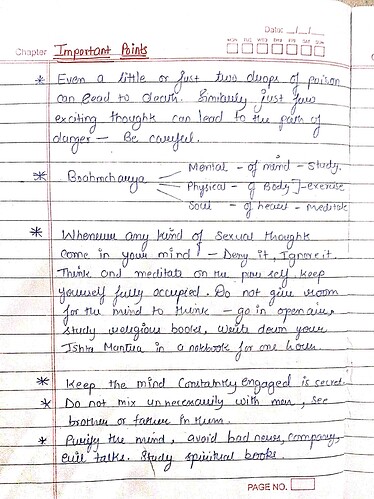 Date: __/__/__
MON TUE WED THU FRI SAT SUN
Chapter Important Points
* Even a little or just two drops of poison
can lead to death. Similarly just few
exciting thoughts can lead to the path of
danger — Be careful.
* Brahmcharya — Mental - of mind - Study.
Physical - of Body] - exercise
Soul - of heart - Meditate
* Whenever any kind of sexual thoughts
come in your mind - Deny it, Ignore it.
Think and meditate on the pure self. keep
yourself fully occupied. Do not give room
for the mind to think - go in open air,
study religious books, write down your
Ishta Mantra in a notebook for one hour.
* Keep the mind Constantly engaged is secret.
* Do not mix unnecessarily with men, see
brother or father in them.
* Purify the mind, avoid bad news, company,
evil talks. Study spiritual books.
PAGE NO.